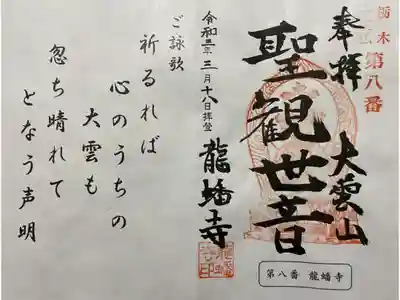 栃木
第八番
奉拝
大雲山
聖観世音
龍蟠寺
令和三年三月十八日拝登
ご詠歌
祈るれば
心のうちの
大雲も
忽ち晴れて
となう声明
第八番 龍蟠寺